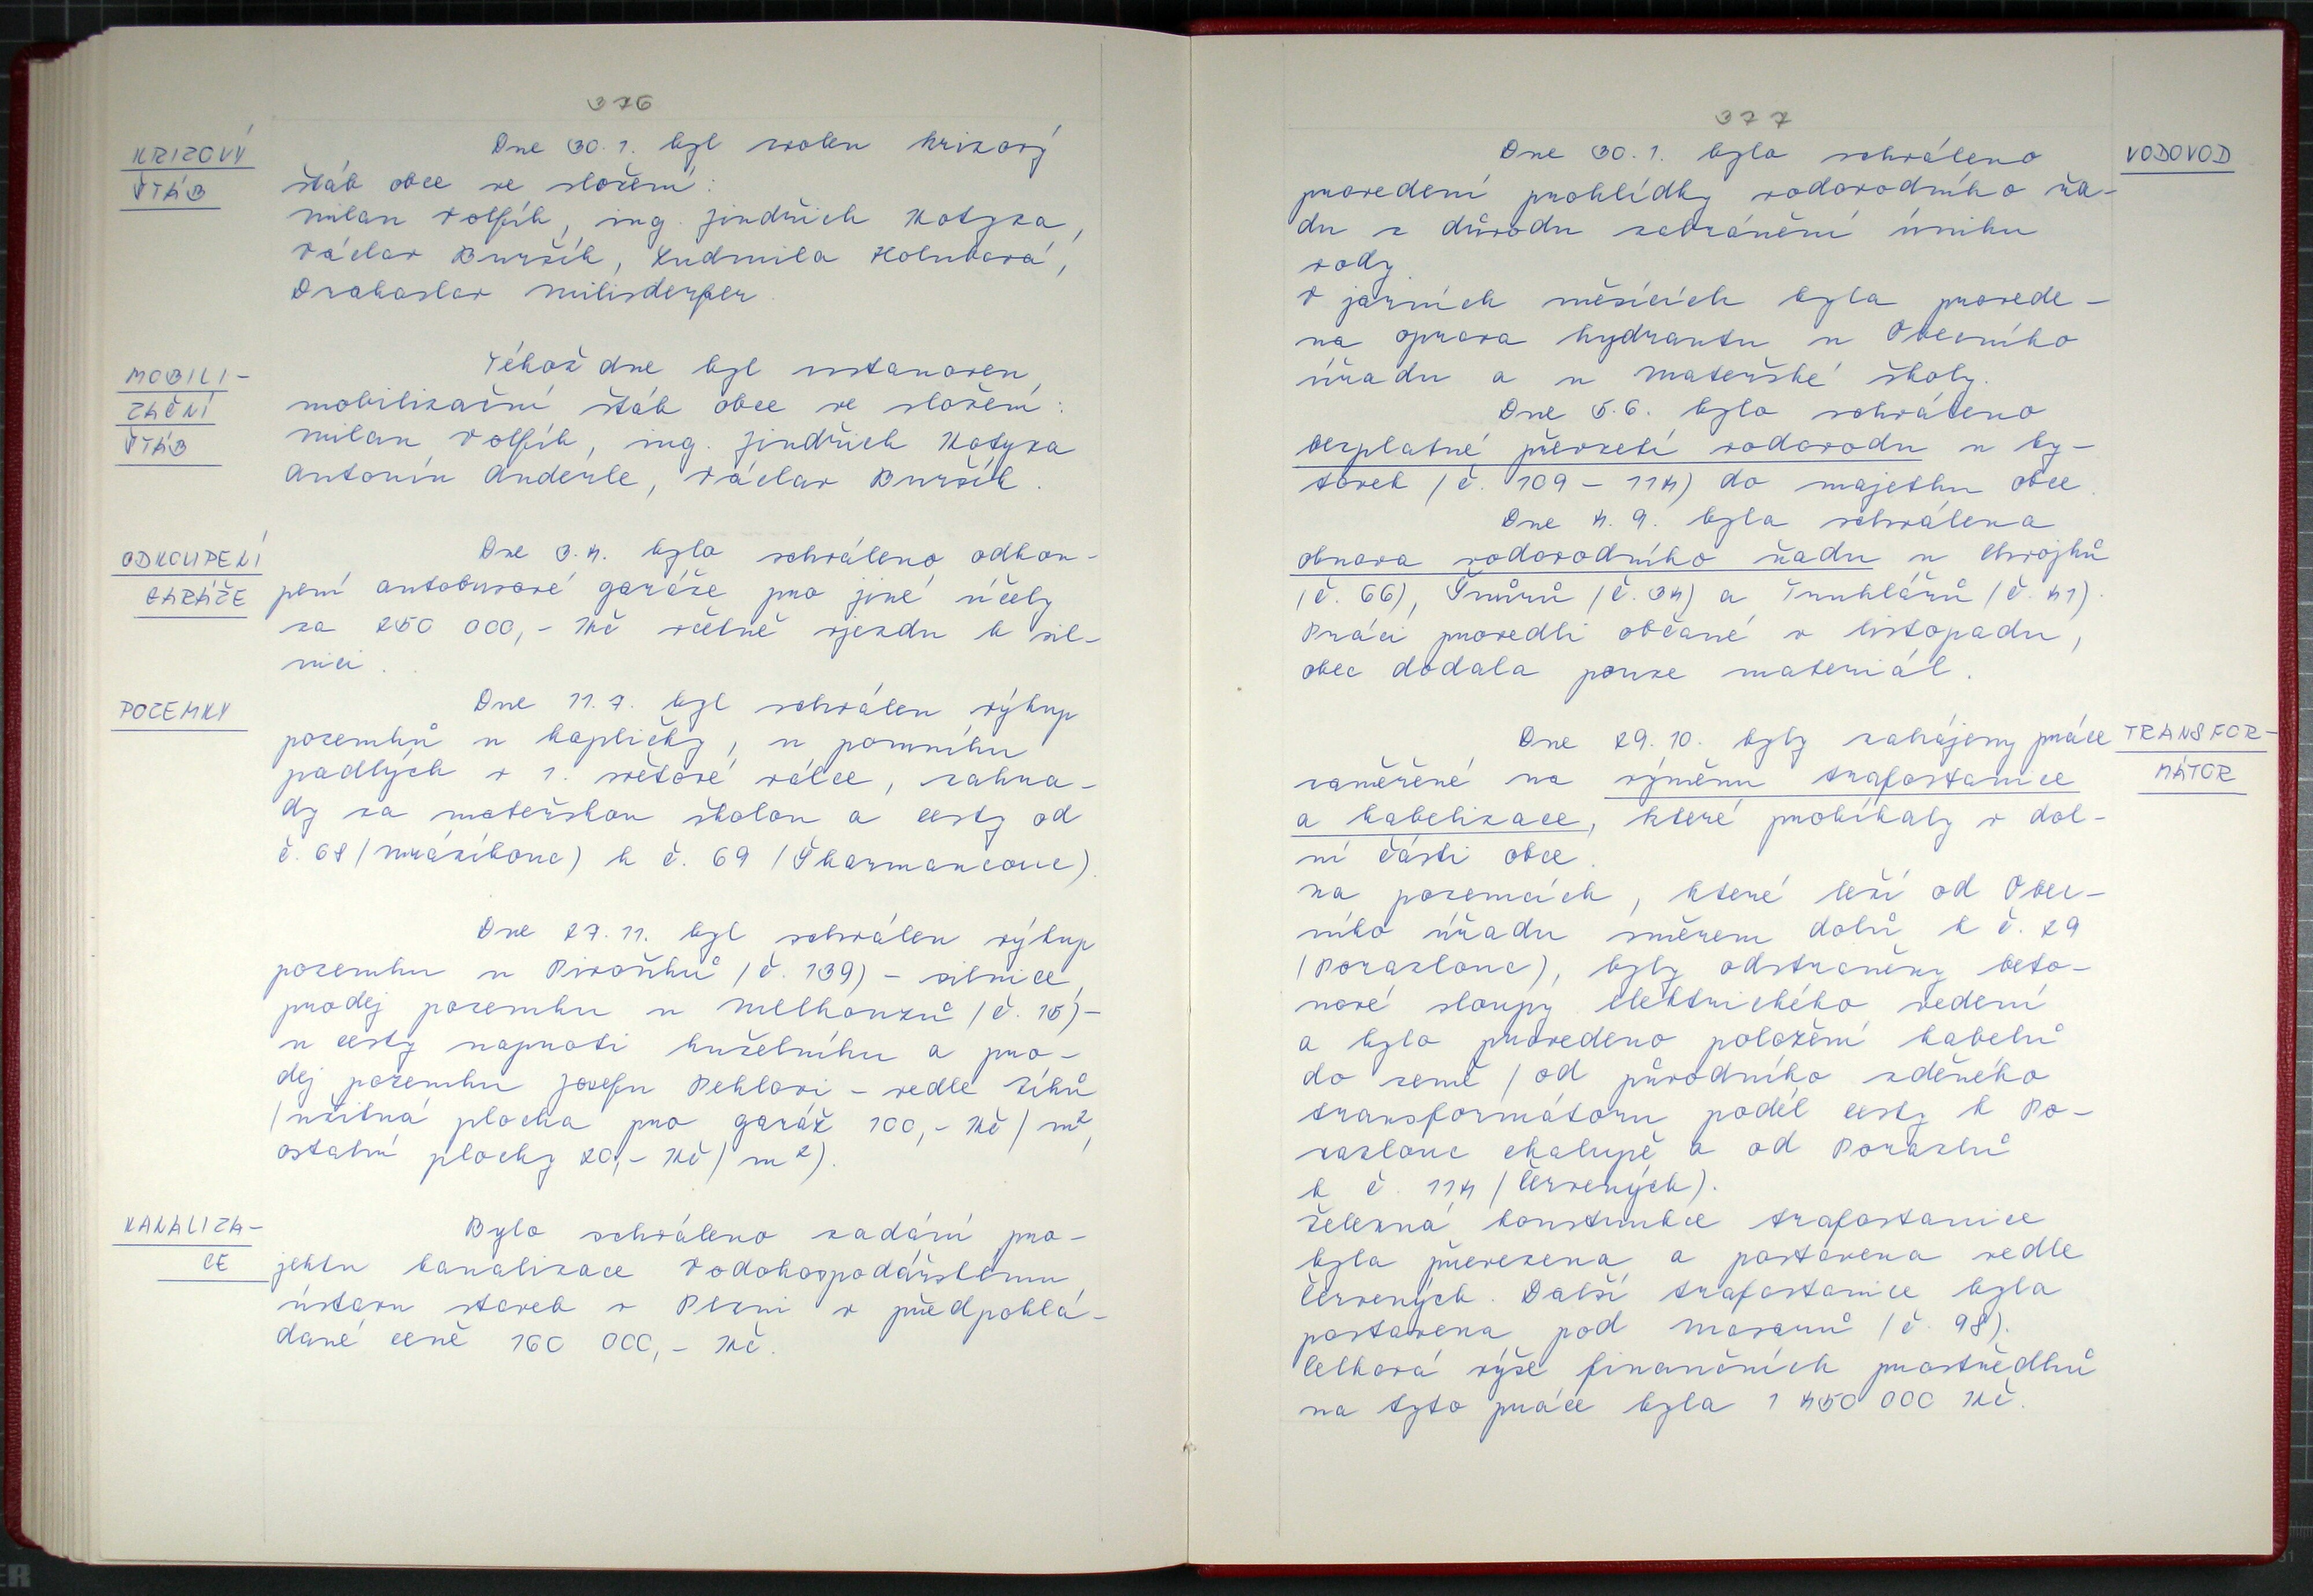 376
KRIZOVÝ
ŠTÁB
Dne 30. 1. byl zvolen krizový
štáb obce ve složení:
Milan Volfík, ing. Jindřich Kotyza,
Václav Buršík, Ludmila Holubová,
Drahoslav Milisderfer.
MOBILI-
ZAČNÍ
ŠTÁB
Téhož dne byl ustanoven
mobilizační štáb obce ve složení:
Milan Volfík, ing. Jindřich Kotyza
Antonín Anderle, Václav Buršík.
ODKOUPENÍ
GARÁŽE
Dne 3. 4. bylo schváleno odkou-
pení autobusové garáže pro jiné účely
za 250 000,- Kč včetně vjezdu k sil-
nici.
POZEMKY
Dne 11. 7. byl schválen výkup
pozemků u kapličky, u pomníku
padlých v 1. světové válce, zahra-
dy za mateřskou školou a cesty od
č. 68 (Mrázíkouc) k č. 69 (Škarmancouc).
Dne 27. 11. byl schválen výkup
pozemku u Pivoňků (č. 139) – silnice,
prodej pozemku u Melkouzů (č. 15) –
u cesty naproti kuželníku a pro-
dej pozemku Josefu Peklovi – vedle Zíků
(užitná plocha pro garáž 100,- Kč/m²,
ostatní plochy 20,- Kč/m²).
KANALIZA-
CE
Bylo schváleno zadání pro-
jektu kanalizace Vodohospodářskému
ústavu staveb v Plzni v předpoklá-
dané ceně 160 000,- Kč.
377
VODOVOD
Dne 30. 1. bylo schváleno
provedení prohlídky vodovodního řa-
du z důvodu zabránění úniku
vody.
V jarních měsících byla provede-
na oprava hydrantu u Obecního
úřadu a u Mateřské školy.
Dne 5. 6. bylo schváleno
bezplatné převzetí vodovodu u by-
tovek (č. 109 – 114) do majetku obce.
Dne 4. 9. byla schválena
obnova vodovodního řadu u Chvojků
(č. 66), Šnůrů (č. 34) a Truhlářů (č. 41).
Práci provedli občané v listopadu,
obec dodala pouze materiál.
TRANSFOR-
MÁTOR
Dne 29. 10. byly zahájeny práce
zaměřené na výměnu trafostanice
a kabelizace, které probíhaly v dol-
ní části obce.
Na pozemcích, které leží od Obec-
ního úřadu směrem dolů k č. 29
(Porazlouc), byly odstraněny beto-
nové sloupy elektrického vedení
a bylo provedeno položení kabelů
do země (od původního zděného
transformátoru podél cesty k Po-
razlouc chalupě a od Porazlů
k č. 114 (Červených).
Železná konstrukce trafostanice
byla převezena a postavena vedle
Červených. Další trafostanice byla
postavena pod Masanů (č. 98).
Celková výše finančních prostředků
na tyto práce byla 1 450 000 Kč.